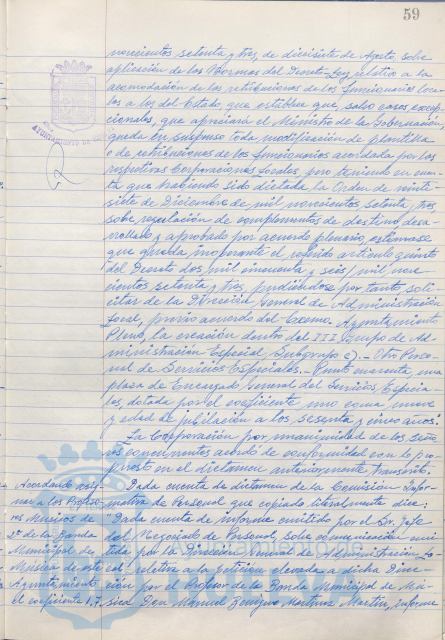 59
novecientos setenta y tres, de diecisiete de Agosto, sobre
aplicación de las Normas del Decreto-Ley relativo a la
acomodación de las retribuciones de los funcionarios loca-
les a los del Estado, que establece que, salvo casos excep-
cionales, que apreciará el Ministro de la Gobernación,
queda en suspenso toda modificación de plantilla
o de retribuciones de los funcionarios acordada por las
respectivas Corporaciones Locales, pero teniendo en cuen-
ta que habiendo sido dictada la Orden de veinti-
siete de Diciembre de mil novecientos setenta y tres
sobre regulación de complementos de destino, desa-
rrollado y aprobado por acuerdo plenario, estimase
que queda inoperante el referido artículo quinto
del Decreto dos mil cincuenta y seis/mil nove-
cientos setenta y tres pudiéndose por tanto, soli-
citar de la Dirección General de Administración
Local, previo acuerdo del Excmo. Ayuntamiento
Pleno, la creación dentro del III Grupo de Ad-
ministración Especial, Subgrupo c).- Otro Perso-
nal de Servicios Especiales.- Punto cuarenta, una
plaza de Encargado General del Servicios Especia
les, dotada por el coeficiente uno coma nueve
y edad de jubilación a los sesenta y cinco años.
La Corporación por unanimidad de los seño
res concurrentes acordó de conformidad con lo pro-
puesto en el dictamen anteriormente transcrito.
Acordando asig- Dada cuenta de dictamen de la Comisión Infor-
nar a los Profeso- mativa de Personal que copiado literalmente dice:
res Músicos de Dada cuenta de informe emitido por el Sr. Jefe
2ª de la Banda del Negociado de Personal, sobre comunicación emi
Municipal de tida por la Dirección General de Administración Lo-
Música de este cal relativa a la petición elevada a dicha Direc-
Ayuntamiento ción por el Profesor de la Banda Municipal de Mú-
el coeficiente 1,7. sica Don Manuel Martín, informe